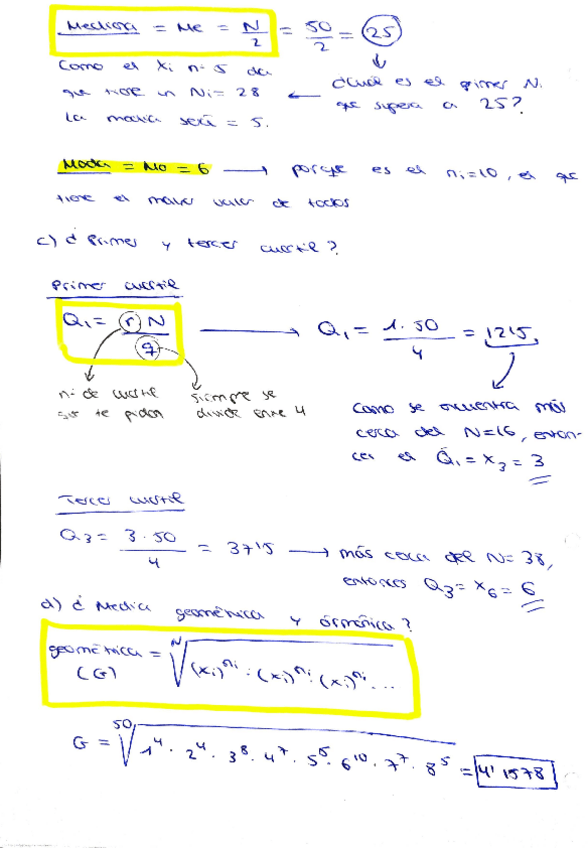 Mediana = Me = N/2 = 50/2 = 25
Como el xi nº 5 da
que tiene un Ni = 28
la media será = 5.
¿Cuál es el primer Ni
que supera a 25?
Moda = Mo = 6 → porque es el ni=10, el que
tiene el mayor valor de todos
c) ¿Primer y tercer cuartil?
Primer cuartil
Q1 = r N / q → Q1 = 1·50 / 4 = 12'5
nº de cuartil
que te piden
siempre se
divide entre 4
Como se encuentra más
cerca del N=16, enton-
ces el Q1 = x3 = 3
Tercer cuartil
Q3 = 3·50 / 4 = 37'5 → más cerca del N= 38,
entonces Q3 = x6 = 6
d) ¿Media geométrica y armónica?
geométrica = ᴺ√(xi)^ni · (xi)^ni · (xi)^ni ...
(G)
G = ⁵⁰√1⁴ · 2⁴ · 3⁸ · 4⁷ · 5⁵ · 6¹⁰ · 7⁷ · 8⁵ = 4'1578